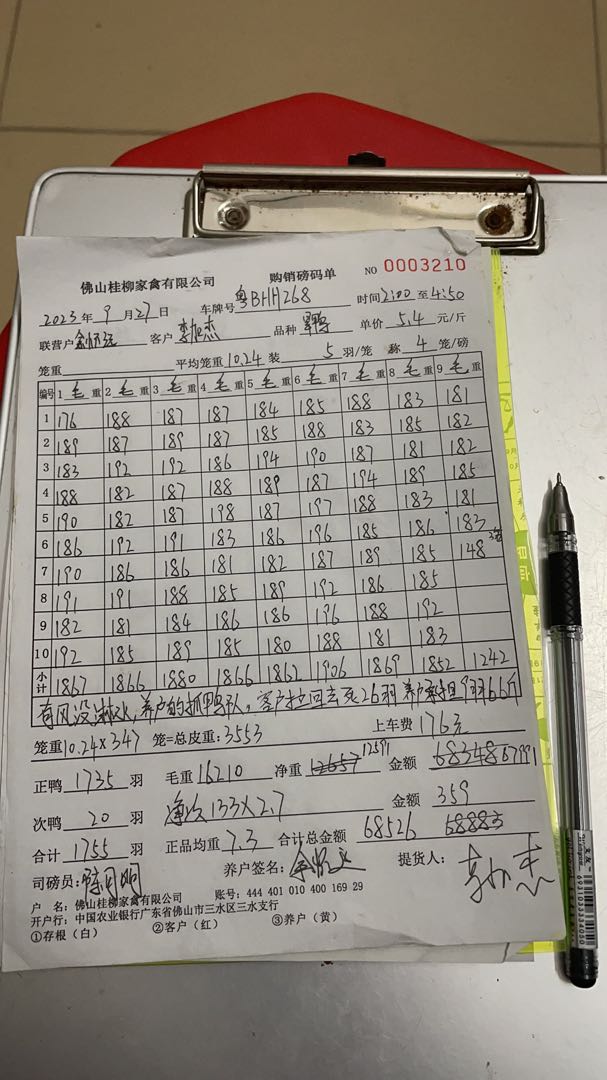 佛山桂柳家禽有限公司 购销磅码单 NO 0003210
2023年 9月27日 车牌号 粤BHH268 时间 2:00 至 4:50
联营户 客户 李旭杰 品种 单价 5.4 元/斤
笼重 平均笼重 10.24 装 5 羽/笼 称 4 笼/磅
编号 1 毛 重 2 毛 重 3 毛 重 4 毛 重 5 毛 重 6 毛 重 7 毛 重 8 毛 重 9 毛 重
1 176 188 187 187 184 185 188 183 181
2 189 187 189 187 185 188 183 185 182
3 183 192 192 186 194 190 187 181 182
4 188 182 187 188 189 187 194 189 185
5 190 182 187 198 187 197 188 183 181
6 186 192 191 183 186 196 185 186 183
7 190 186 186 181 182 187 189 185 148
8 191 191 188 185 189 192 186 185
9 182 181 184 186 186 196 188 192
10 192 185 189 185 180 188 181 183
小计 1867 1866 1880 1866 1862 1906 1869 1852 1242
有风没淋水,养户的抓鸭队。客户拉回去死26羽 养户承担9羽66斤
笼重 10.24×347 笼=总皮重: 3553 上车费 176元
正鸭 1735 羽 毛重 16210 净重 12657 12591 金额 68348 67991
次鸭 20 羽 净次 133×2.7 金额 359
合计 1755 羽 正品均重 7.3 合计总金额 68526 68883
司磅员: 养户签名: 提货人:
户 名: 佛山桂柳家禽有限公司 账号: 444 401 010 400 169 29
开户行: 中国农业银行广东省佛山市三水区三水支行
①存根(白) ②客户(红) ③养户(黄)